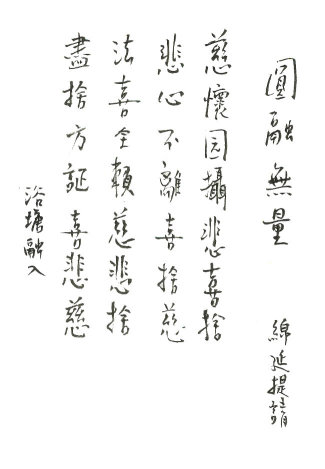 圓融無量 綿延提請
慈懷因攝悲喜捨
悲心不離喜捨慈
法喜全賴慈悲捨
盡捨方証喜悲慈
浴塘融入